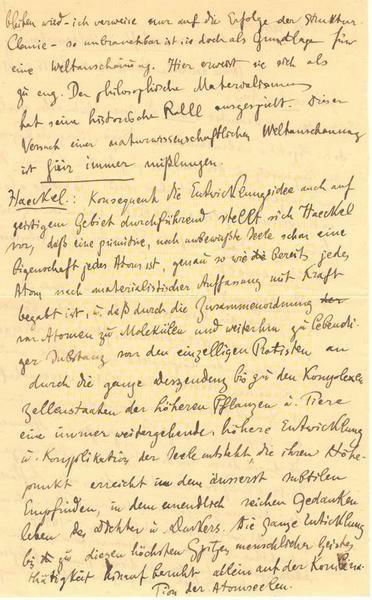 bleiben wird - ich verweise nur auf die Erfolge der Struktur-
Chemie - so unbrauchbar ist sie doch als Grundlage für
eine Weltanschauung. Hier erweist sie sich als
zu eng. Der philosophische Materialismus
hat seine historische Rolle ausgespielt. Dieser
Versuch einer naturwissenschaftlichen Weltanschauung
ist für immer mißlungen.
Haeckel.: Konsequent die Entwicklungsidee auch auf
geistigem Gebiet durchführend stellt sich Haeckel
vor, daß eine primitive, noch unbewußte Seele schon eine
Eigenschaft jedes Atoms ist, genau so wie die Bereits jedes
Atom nach materialistischer Auffassung mit Kraft
begabt ist, u. daß durch die Zusammenordnung der
von Atomen zu Molekülen und weiterhin zu lebendi-
ger Substanz von den einzelligen Protisten an
durch die ganze Deszendenz bis zu den Komplexen
Zellenstaaten der höheren Pflanzen u. Tiere
eine immer weitergehende höhere Entwicklung
u. Komplikation der Seele entsteht, die ihren Höhe-
punkt erreicht in dem äusserst subtilen
Empfinden, in dem unendlich reichen Gedanken
leben des Dichters u. Denkers. Die ganze Entwicklung
bis zu diesen höchsten Spitzen menschlicher Geistes
thätigkeit hinauf beruht allein auf der Kombina-
tion der Atomseelen.